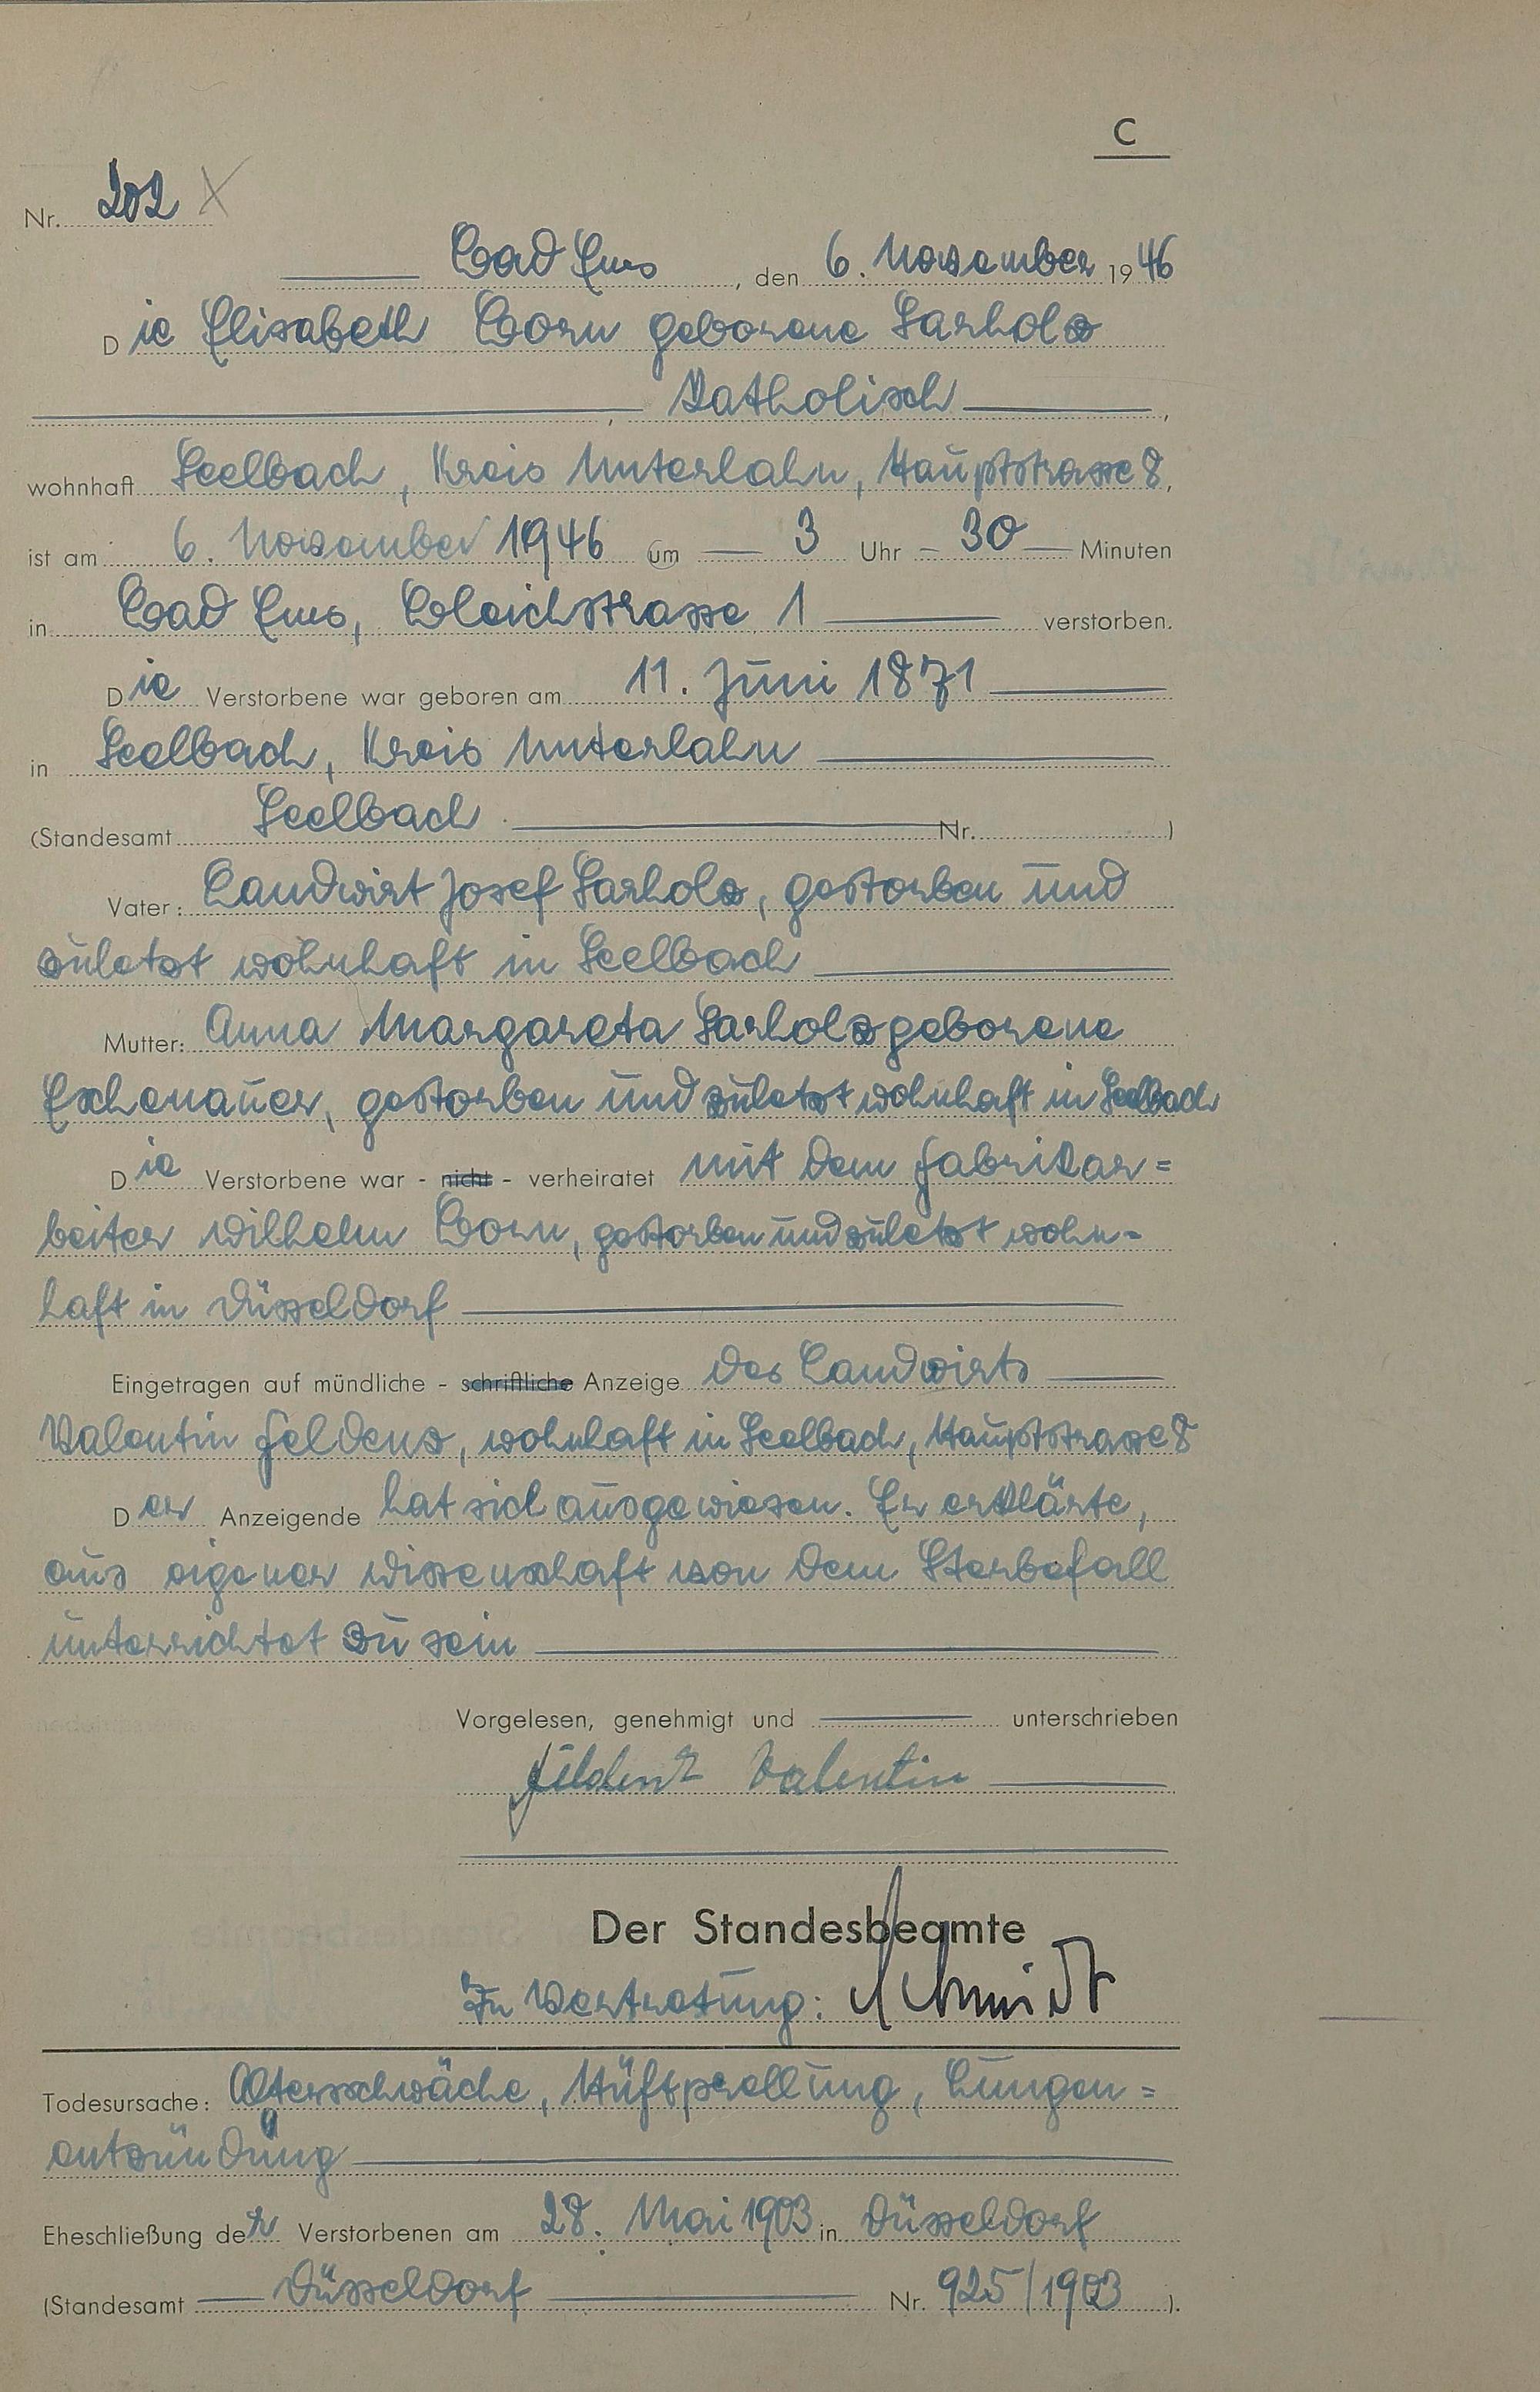 C
Nr. 202 X
Bad Ems, den 6. November 1946
Die Elisabeth Born geborene Sarholz
, Katholisch,
wohnhaft Seelbach, Kreis Unterlahn, Hauptstrasse 8,
ist am 6. November 1946 um 3 Uhr 30 Minuten
in Bad Ems, Bleichstrasse 1 verstorben.
Die Verstorbene war geboren am 11. Juni 1871
in Seelbach, Kreis Unterlahn
(Standesamt Seelbach Nr. )
Vater: Landwirt Josef Sarholz, gestorben und
zuletzt wohnhaft in Seelbach
Mutter: Anna Margareta Sarholz geborene
Eschenauer, gestorben und zuletzt wohnhaft in Seelbach
Die Verstorbene war - nicht - verheiratet mit dem Fabrikar=
beiter Wilhelm Born, gestorben und zuletzt wohn-
haft in Düsseldorf
Eingetragen auf mündliche - schriftliche Anzeige des Landwirts
Valentin Feldenz, wohnhaft in Seelbach, Hauptstrasse 8
Der Anzeigende hat sich ausgewiesen. Er erklärte,
aus eigener Wissenschaft von dem Sterbefall
unterrichtet zu sein
Vorgelesen, genehmigt und unterschrieben
Feldenz Valentin
Der Standesbeamte
In Vertretung: Schmidt
Todesursache: Altersschwäche, Hüftprellung, Lungen=
entzündung
Eheschließung der Verstorbenen am 28. Mai 1903 in Düsseldorf
(Standesamt Düsseldorf Nr. 925/1903 ).